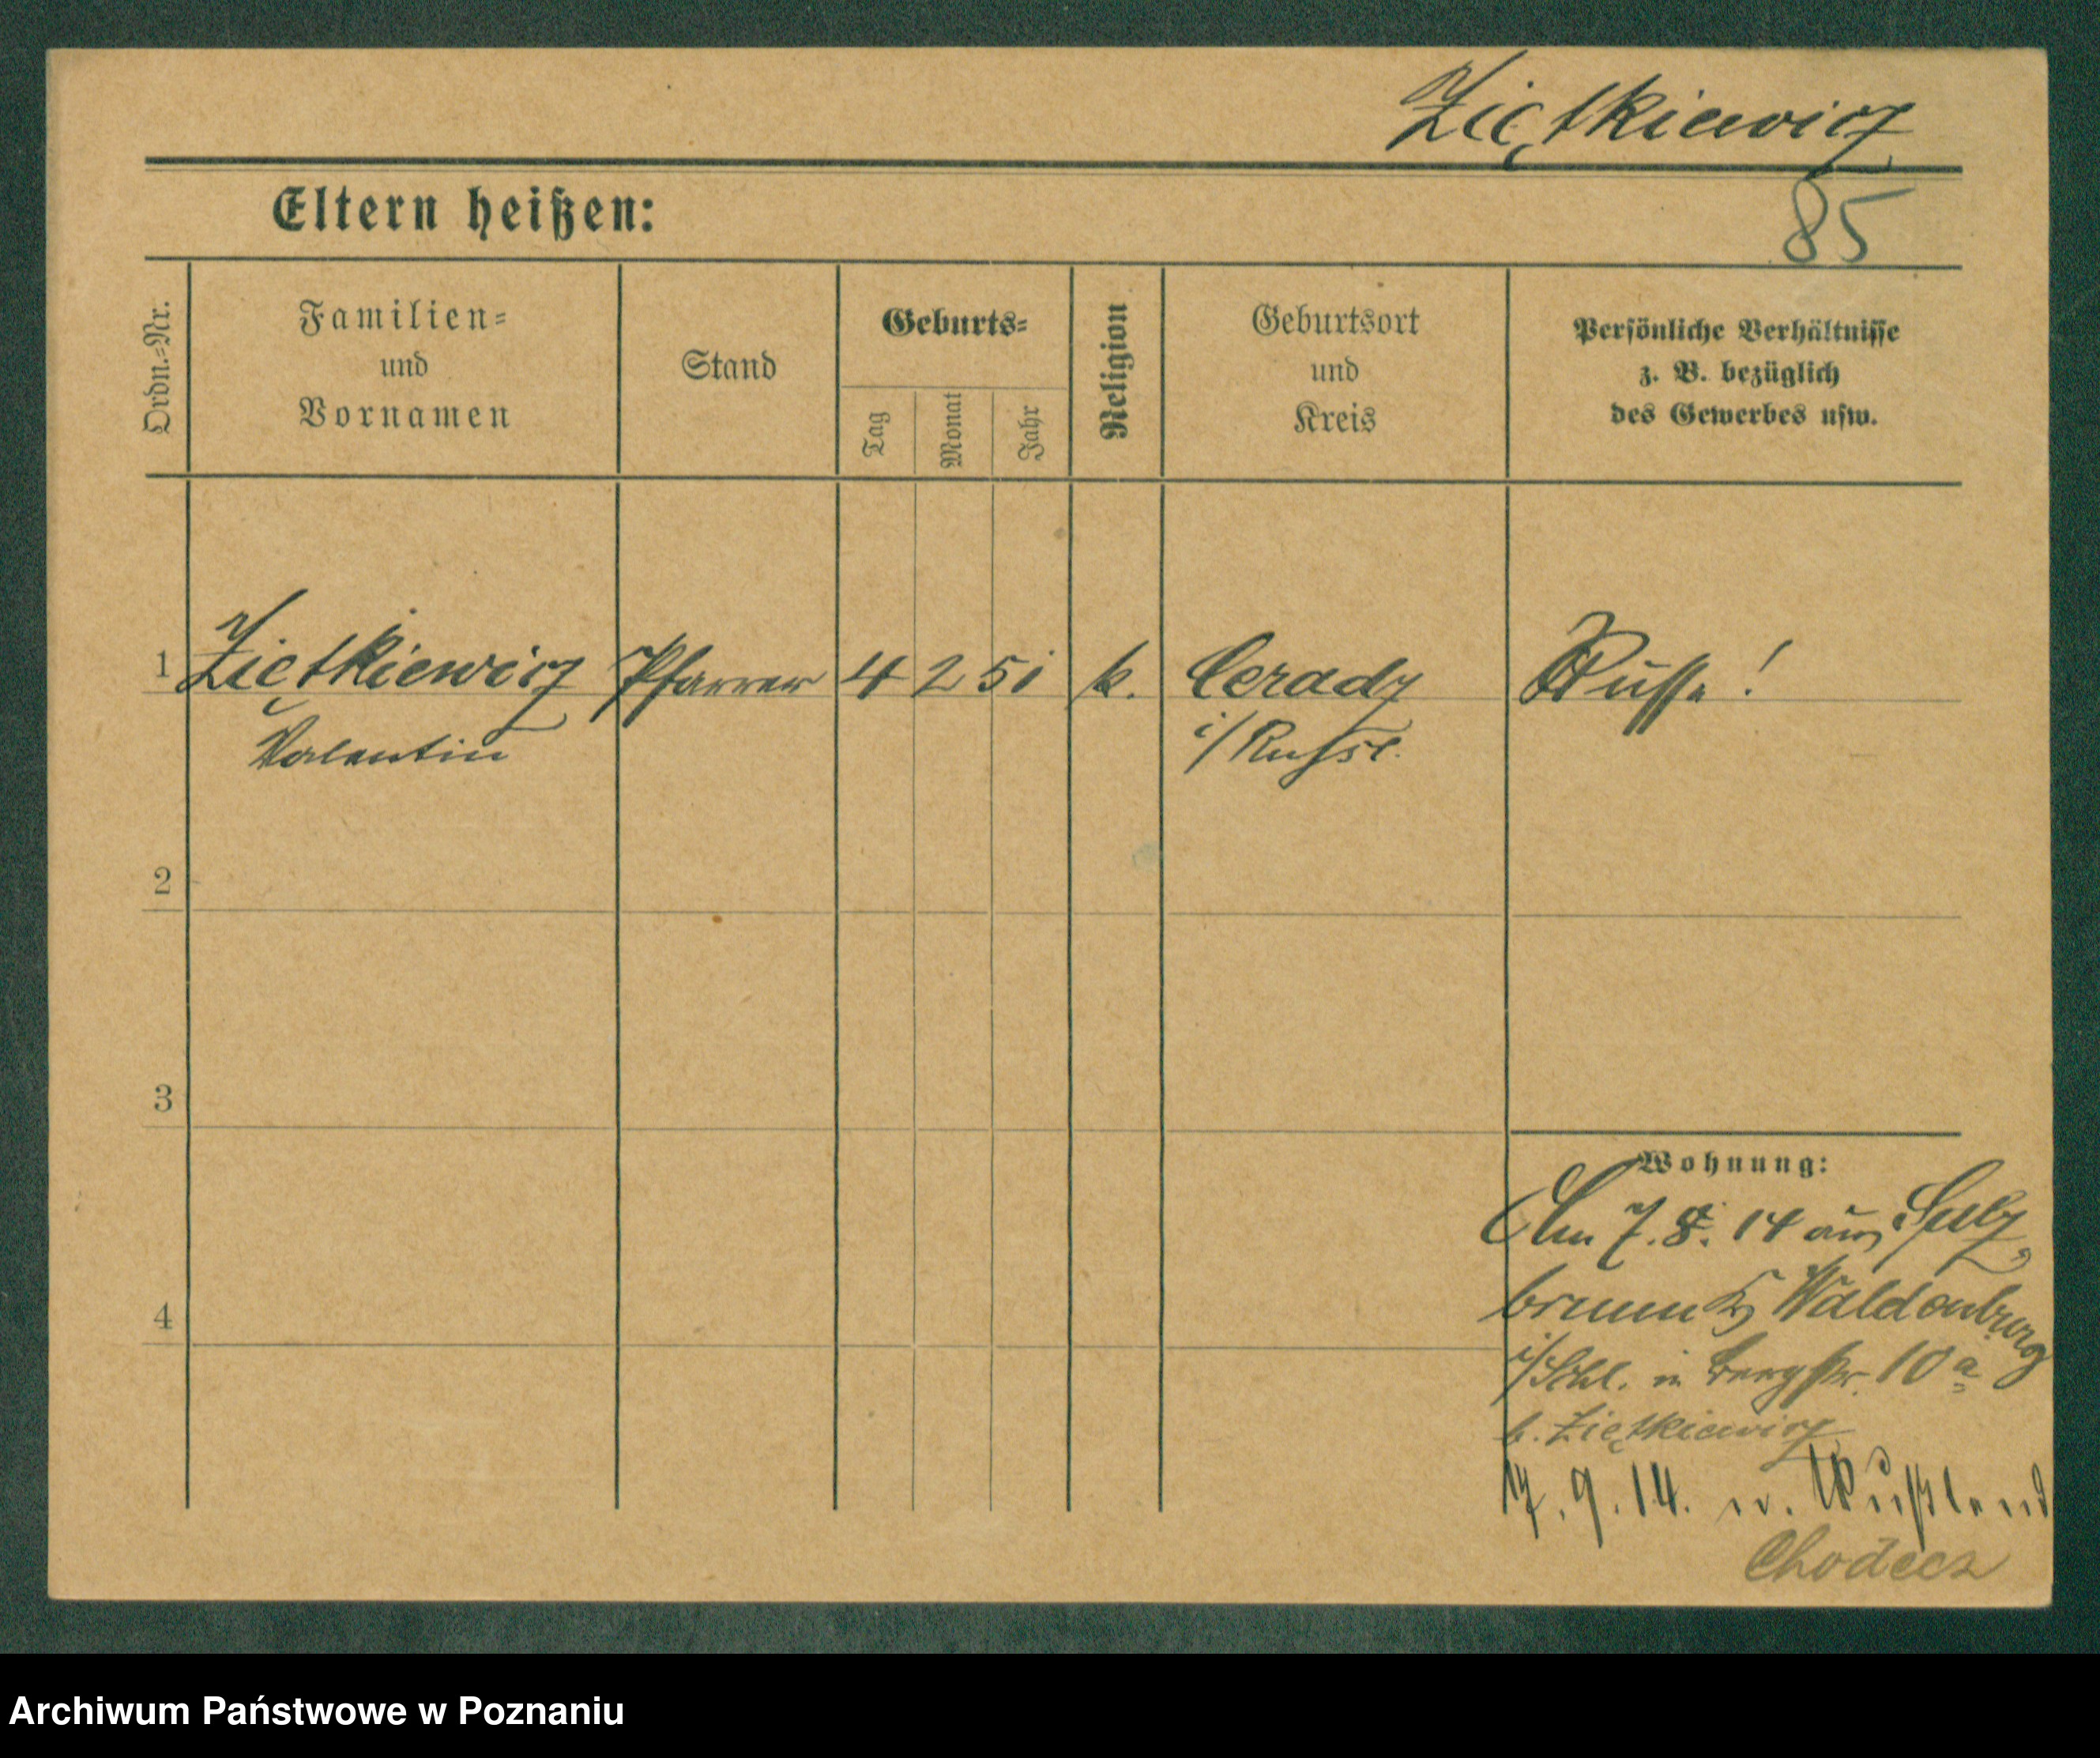 Ziętkiewicz
Eltern heißen:
85
Ordn.-Nr.
Familien-
und
Vornamen
Stand
Geburts-
Tag
Monat
Jahr
Religion
Geburtsort
und
Kreis
Persönliche Verhältnisse
z. B. bezüglich
des Gewerbes usw.
1 Ziętkiewicz Pfarrer 4 2 51 k. Ceradz Russe!
Valentin i/Russl.
2
3
4
Wohnung:
Am 7.8.14 aus Salz-
brunn Kr Waldenburg
i/Schl. in Bergstr. 10a
b. Ziętkiewicz
17.9.14. n. Rußland
Chodecz
Archiwum Państwowe w Poznaniu